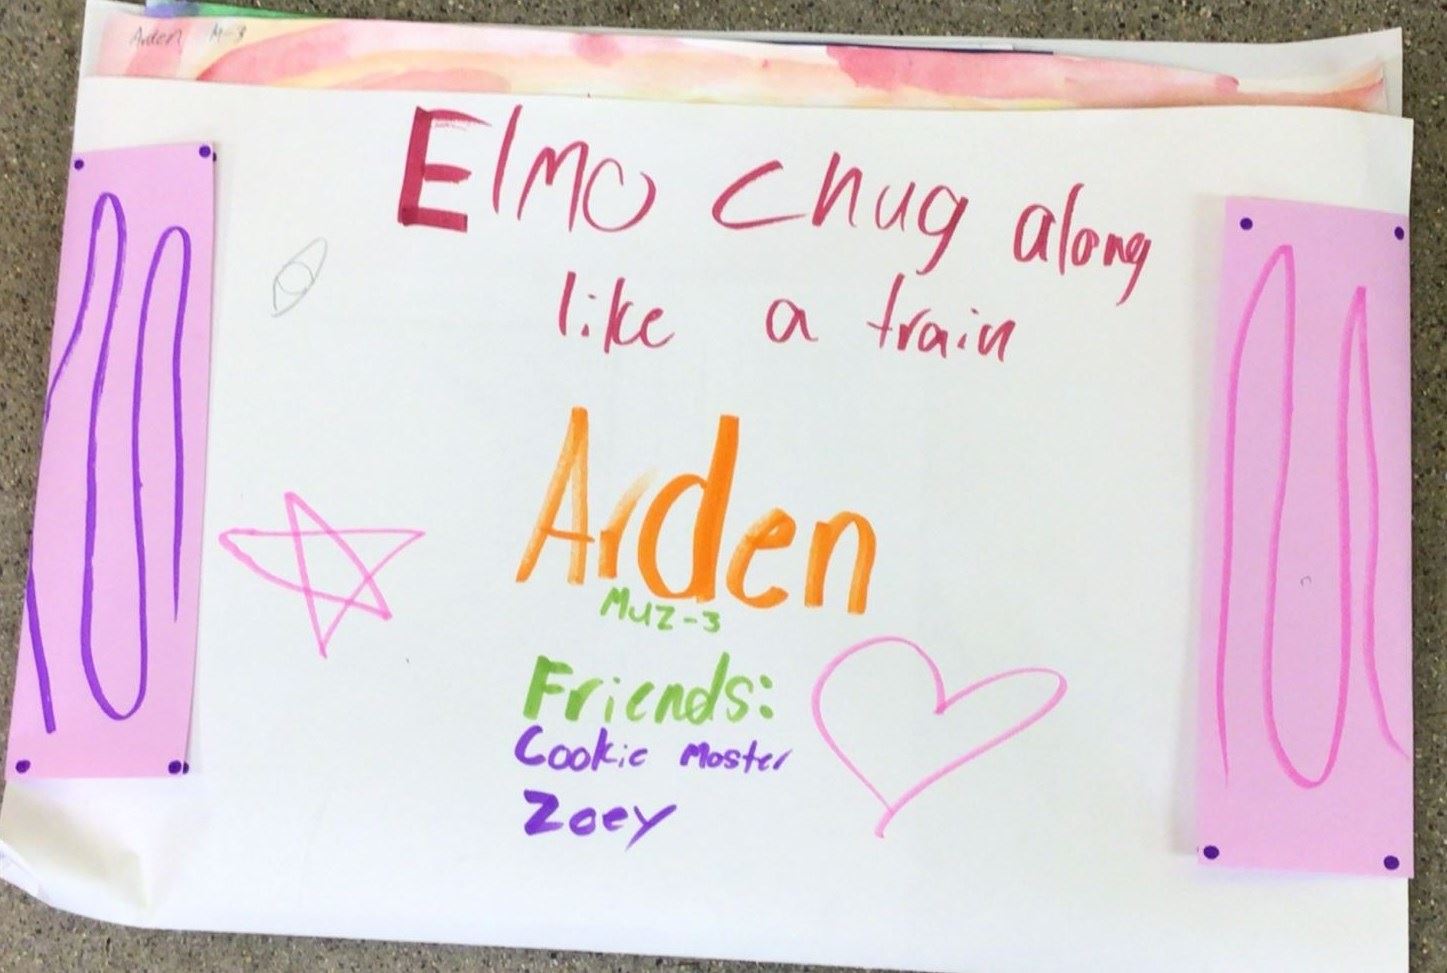 Arden M-3
Elmo chug along
like a train
Arden
Muz-3
Friends:
Cookie Moster
Zoey